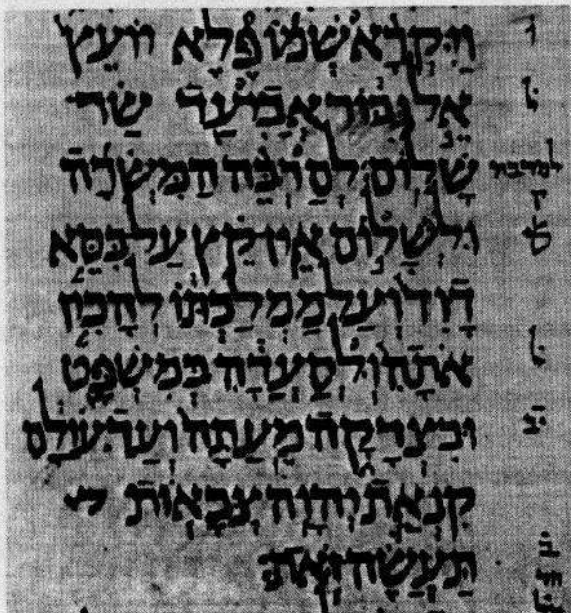 וַיִּקְרָא שְׁמוֹ פֶּלֶא יוֹעֵץ
אֵל גִּבּוֹר אֲבִיעַד שַׂר
שָׁלוֹם׃ לְםַרְבֵּה הַמִּשְׂרָה למרבה
ק
וּלְשָׁלוֹם אֵין קֵץ עַל כִּסֵּא
דָּוִד וְעַל מַמְלַכְתּוֹ לְהָכִין
אֹתָהּ וּלְסַעֲדָהּ בְּמִשְׁפָּט
וּבִצְדָקָה מֵעַתָּה וְעַד עוֹלָם
קִנְאַת יְהוָה צְבָאוֹת
תַּעֲשֶׂה זֹּאת׃